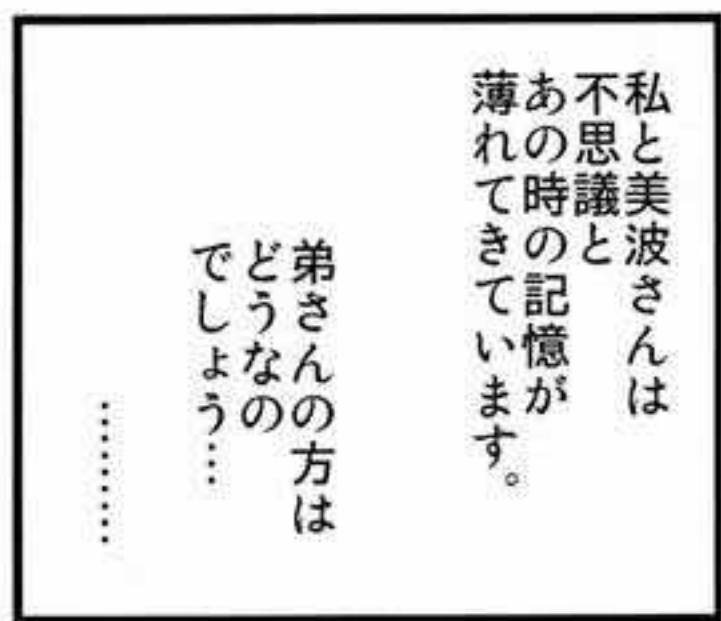 私と美波さんは
不思議と
あの時の記憶が
薄れてきています。
弟さんの方は
どうなの
でしょう…
………